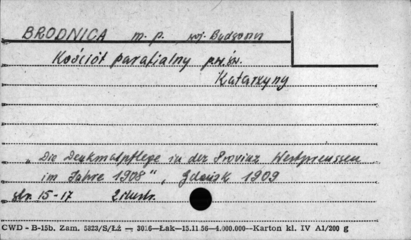 BRODNICA m. p. woj. Bydgoszcz
Kościół parafialny p.w. św.
Katarzyny
„Die Denkmalpflege in der Provinz Westpreussen
im Jahre 1908", Gdańsk 1909
str. 15-17 2 ilustr.
CWD - B-15b. Zam. 5822/S/Łż — 30:6—Łak—15.11.56—4.000.000—Karton kl. IV A1/200 g